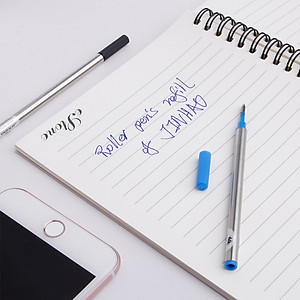 Stone
Roller pen's refill
of JINHAO